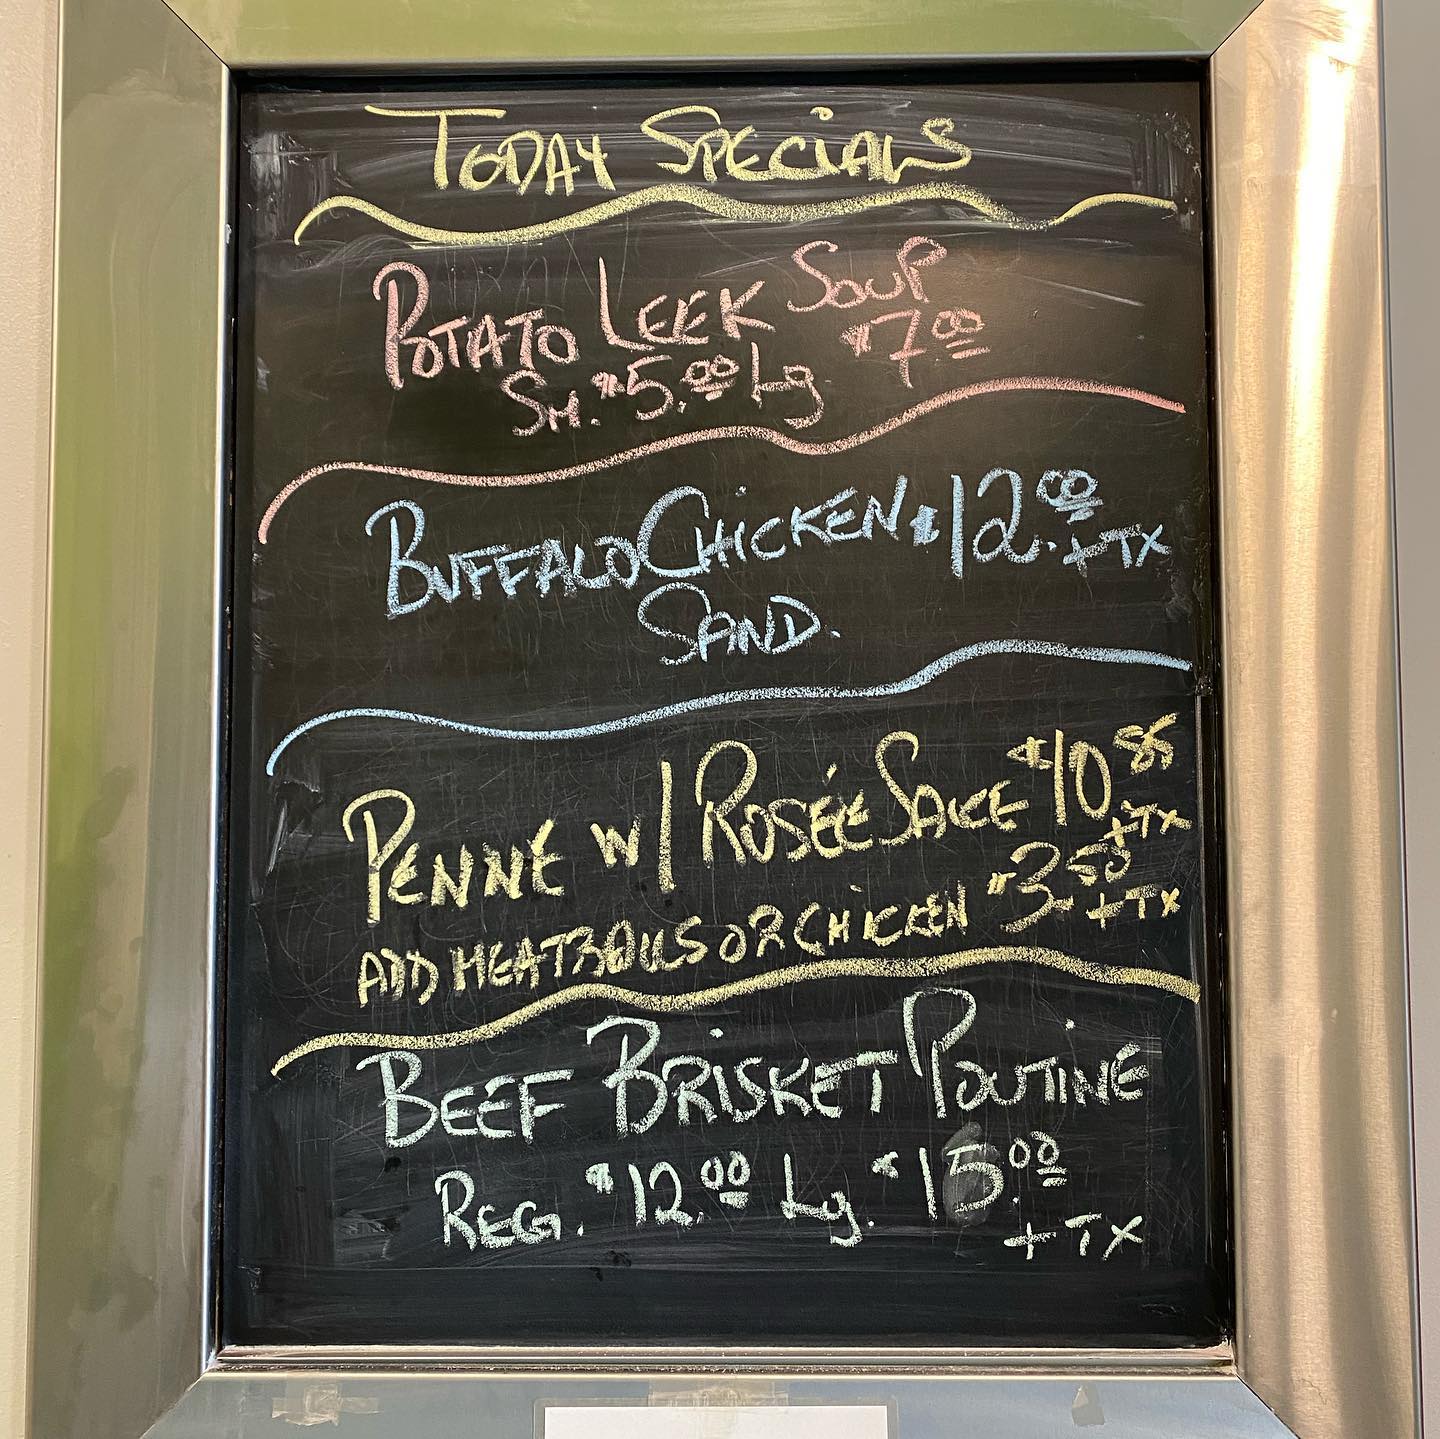 TODAY SPECIALS
POTATO LEEK SOUP
SM. $5.00 Lg $7.00
BUFFALO CHICKEN $12.00 + TX
SAND.
PENNE W/ ROSÉE SAUCE $10.85 + TX
ADD MEATBALLS OR CHICKEN $3.50 + TX
BEEF BRISKET POUTINE
REG. $12.00 Lg. $15.00
+ TX